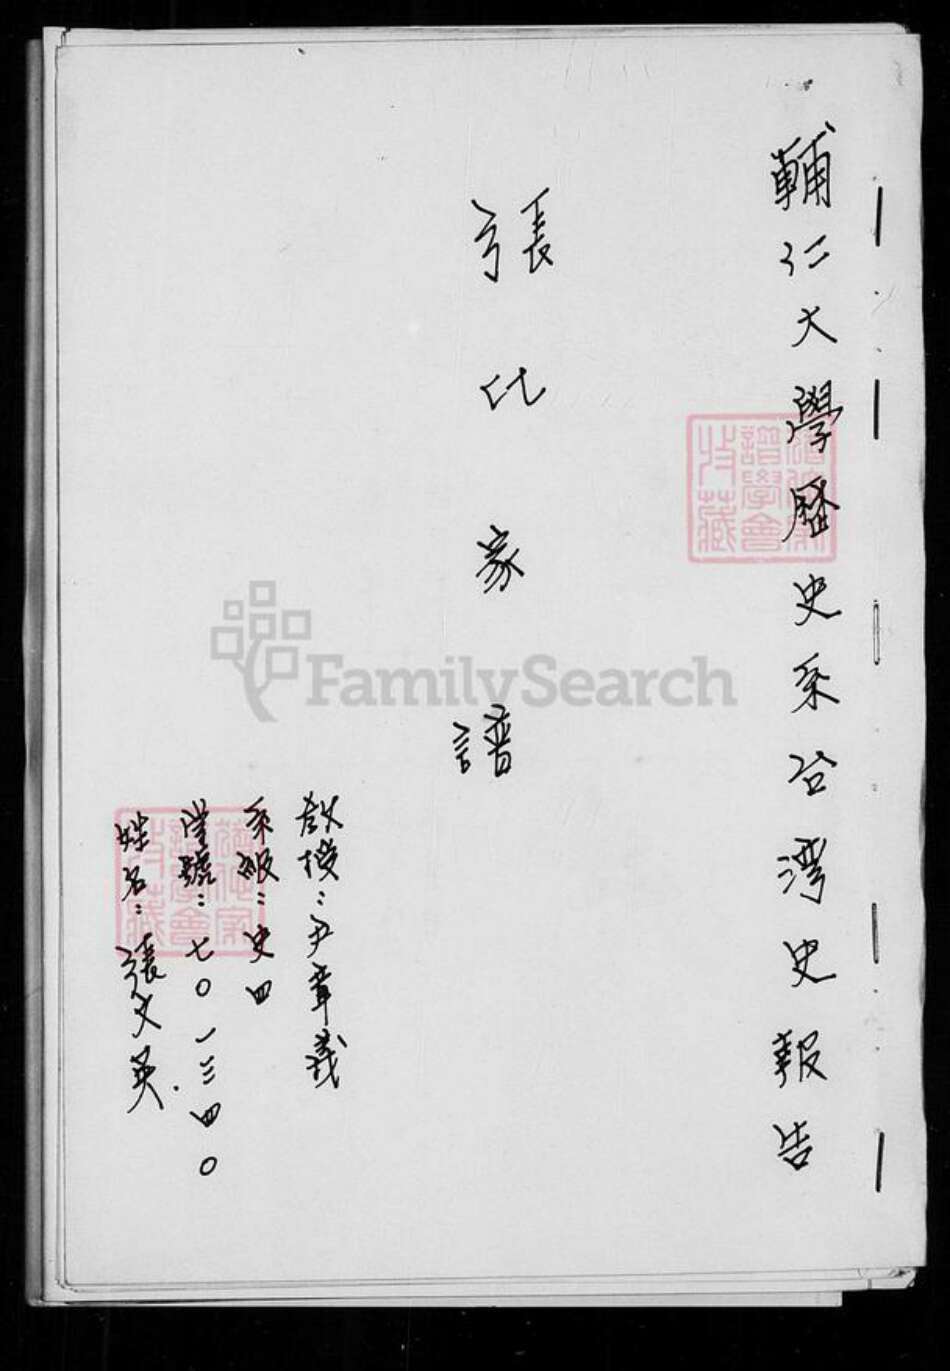 輔仁大學歷史系台灣史報告
張氏家譜
教授：尹章義
系級：史四
學號：七〇一三四〇
姓名：張文英
譜學會
收藏
FamilySearch
譜學會
收藏